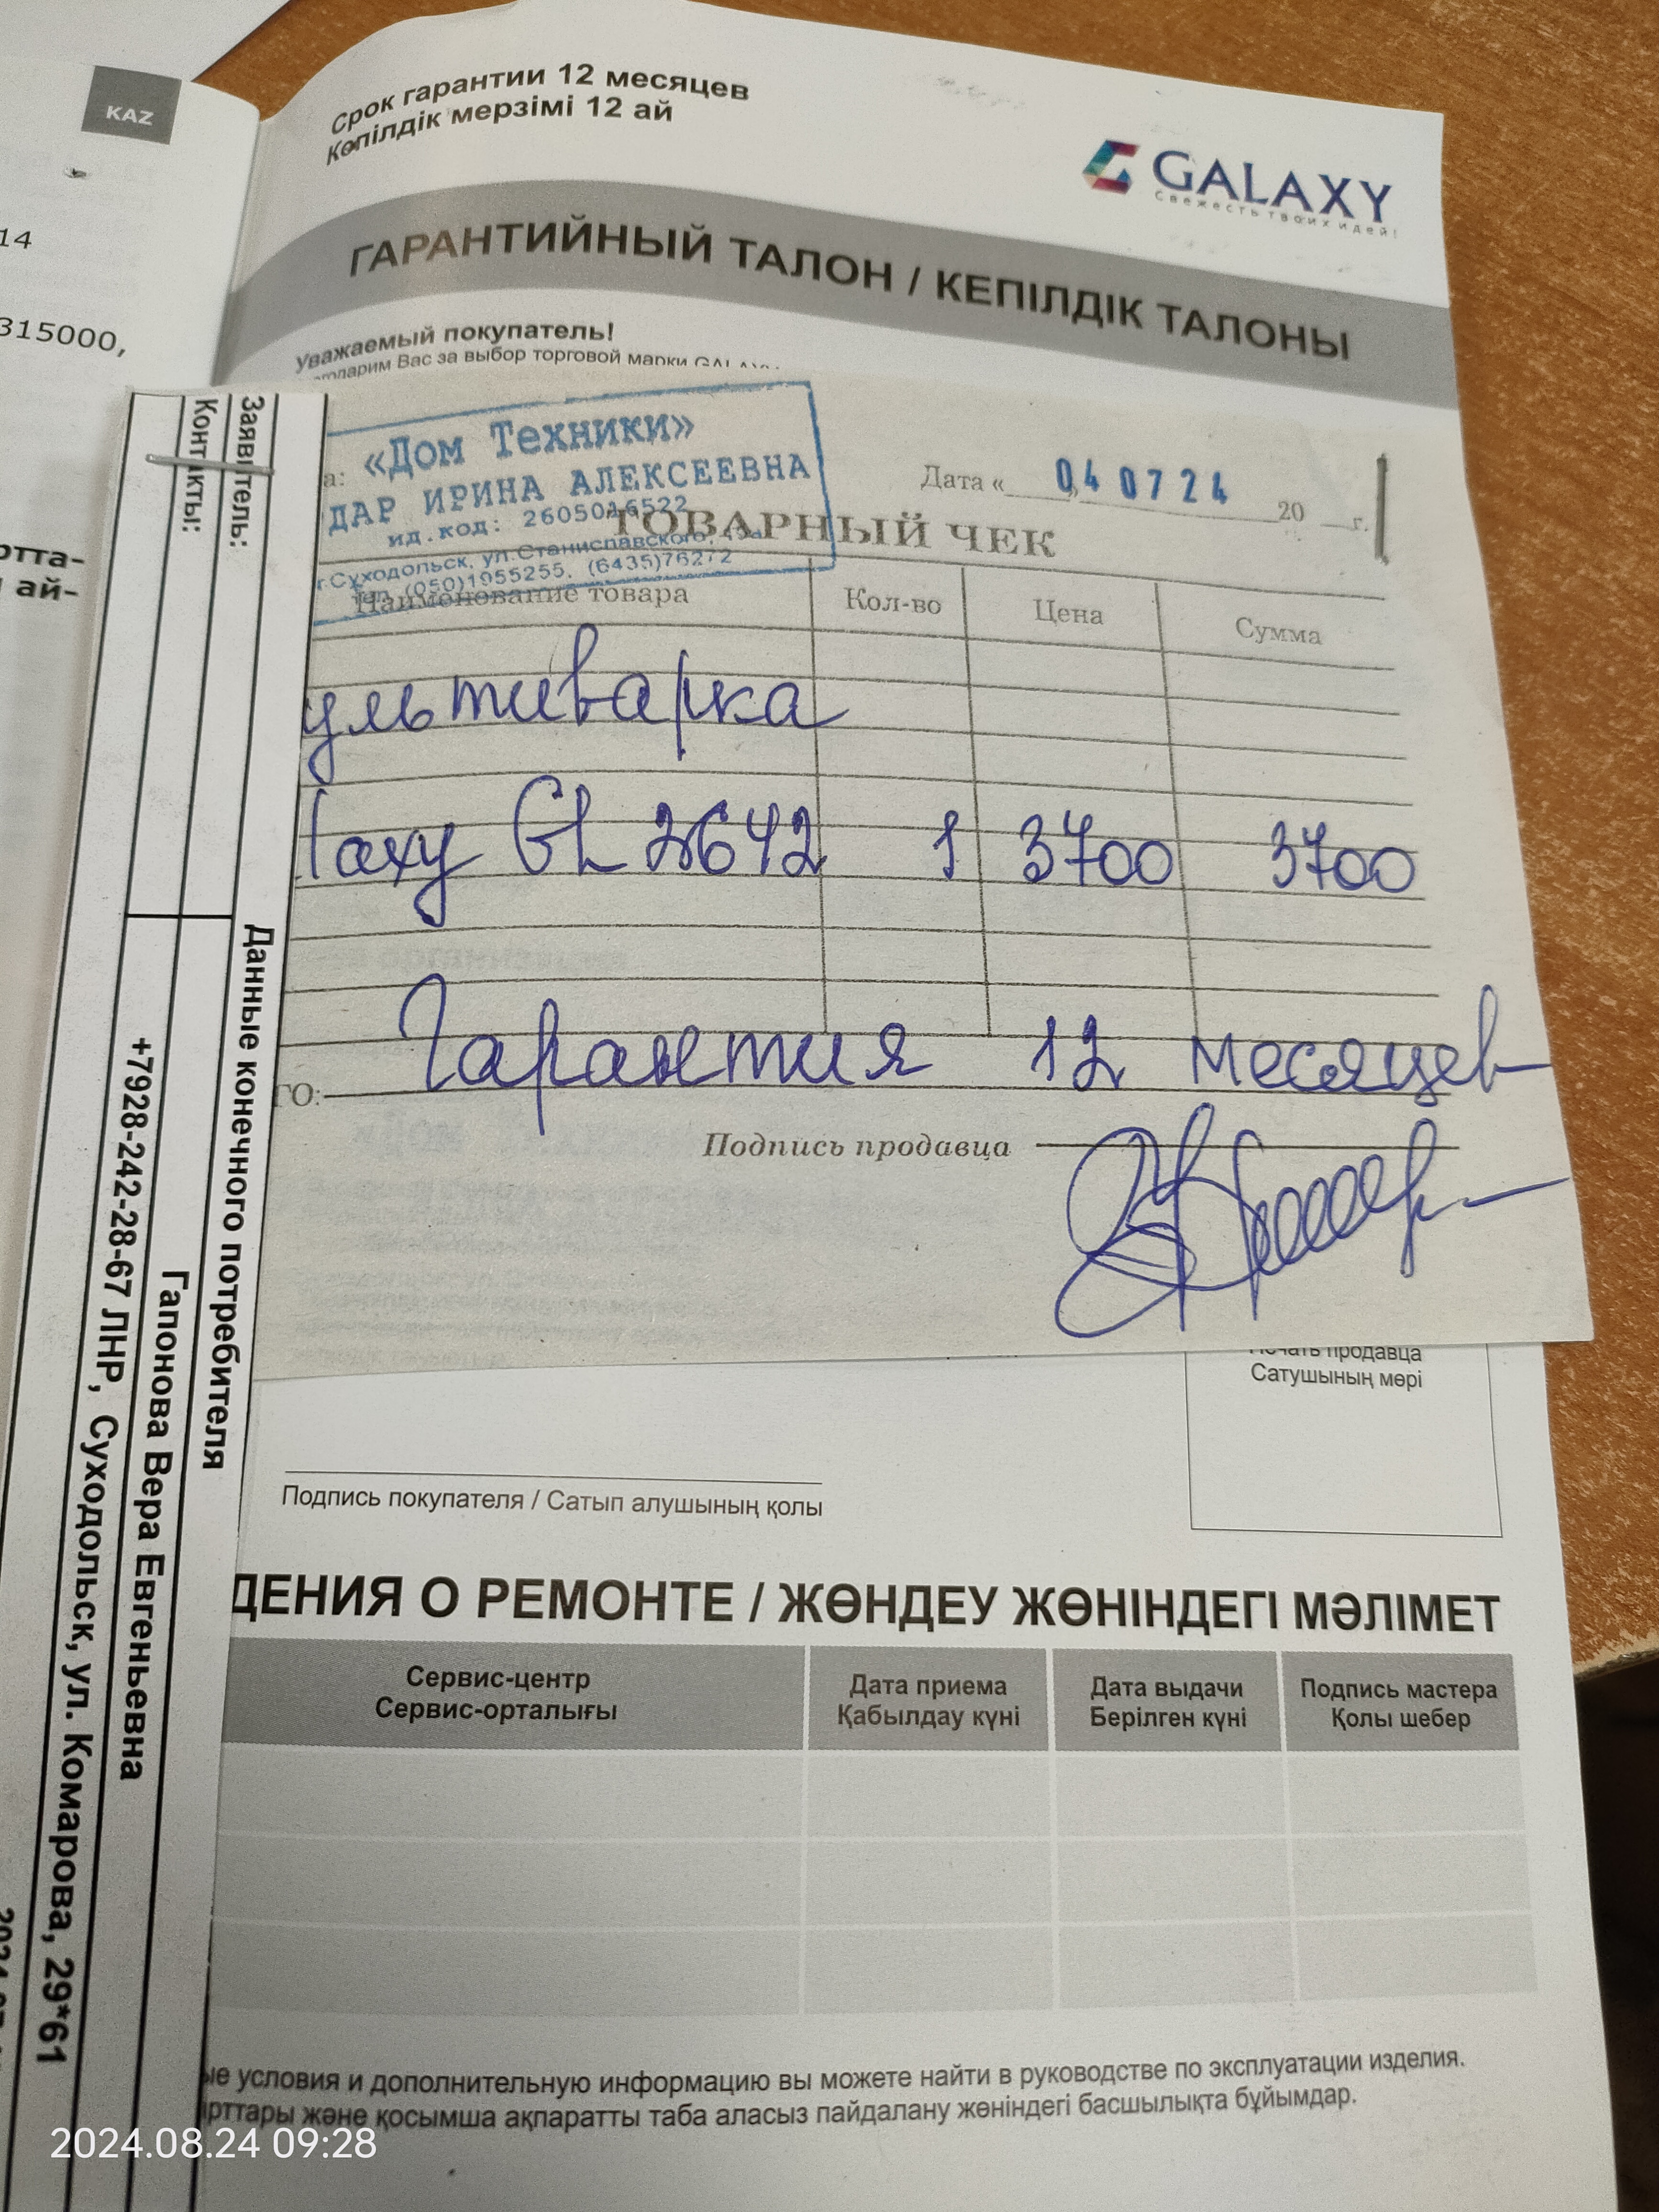 KAZ
14
315000,
отта-
ай-
Срок гарантии 12 месяцев
Кепілдік мерзімі 12 ай
GALAXY
Свежесть твоих идей!
ГАРАНТИЙНЫЙ ТАЛОН / КЕПІЛДІК ТАЛОНЫ
Уважаемый покупатель!
Вас за выбор торговой марки GALAXY
«Дом Техники»
ДАР ИРИНА АЛЕКСЕЕВНА
ид.код: 2605016522
г.Суходольск, ул.Станиславского,
тел. (050)1955255, (6435)76272
Дата « 04 07 24 20 г.
ТОВАРНЫЙ ЧЕК
Наименование товара Кол-во Цена Сумма
ультиварка
laxy GL 2642 1 3700 3700
Гарантия 12 месяцев
ГО:
Подпись продавца
Данные конечного потребителя
Заявитель: Гапонова Вера Евгеньевна
Контакты: +7928-242-28-67 ЛНР, Суходольск, ул. Комарова, 29*61
Печать продавца
Сатушының мөрі
Подпись покупателя / Сатып алушының қолы
ДЕНИЯ О РЕМОНТЕ / ЖӨНДЕУ ЖӨНІНДЕГІ МӘЛІМЕТ
Сервис-центр
Сервис-орталығы
Дата приема
Қабылдау күні
Дата выдачи
Берілген күні
Подпись мастера
Қолы шебер
ые условия и дополнительную информацию вы можете найти в руководстве по эксплуатации изделия.
рттары және қосымша ақпаратты таба аласыз пайдалану жөніндегі басшылықта бұйымдар.
2024.08.24 09:28